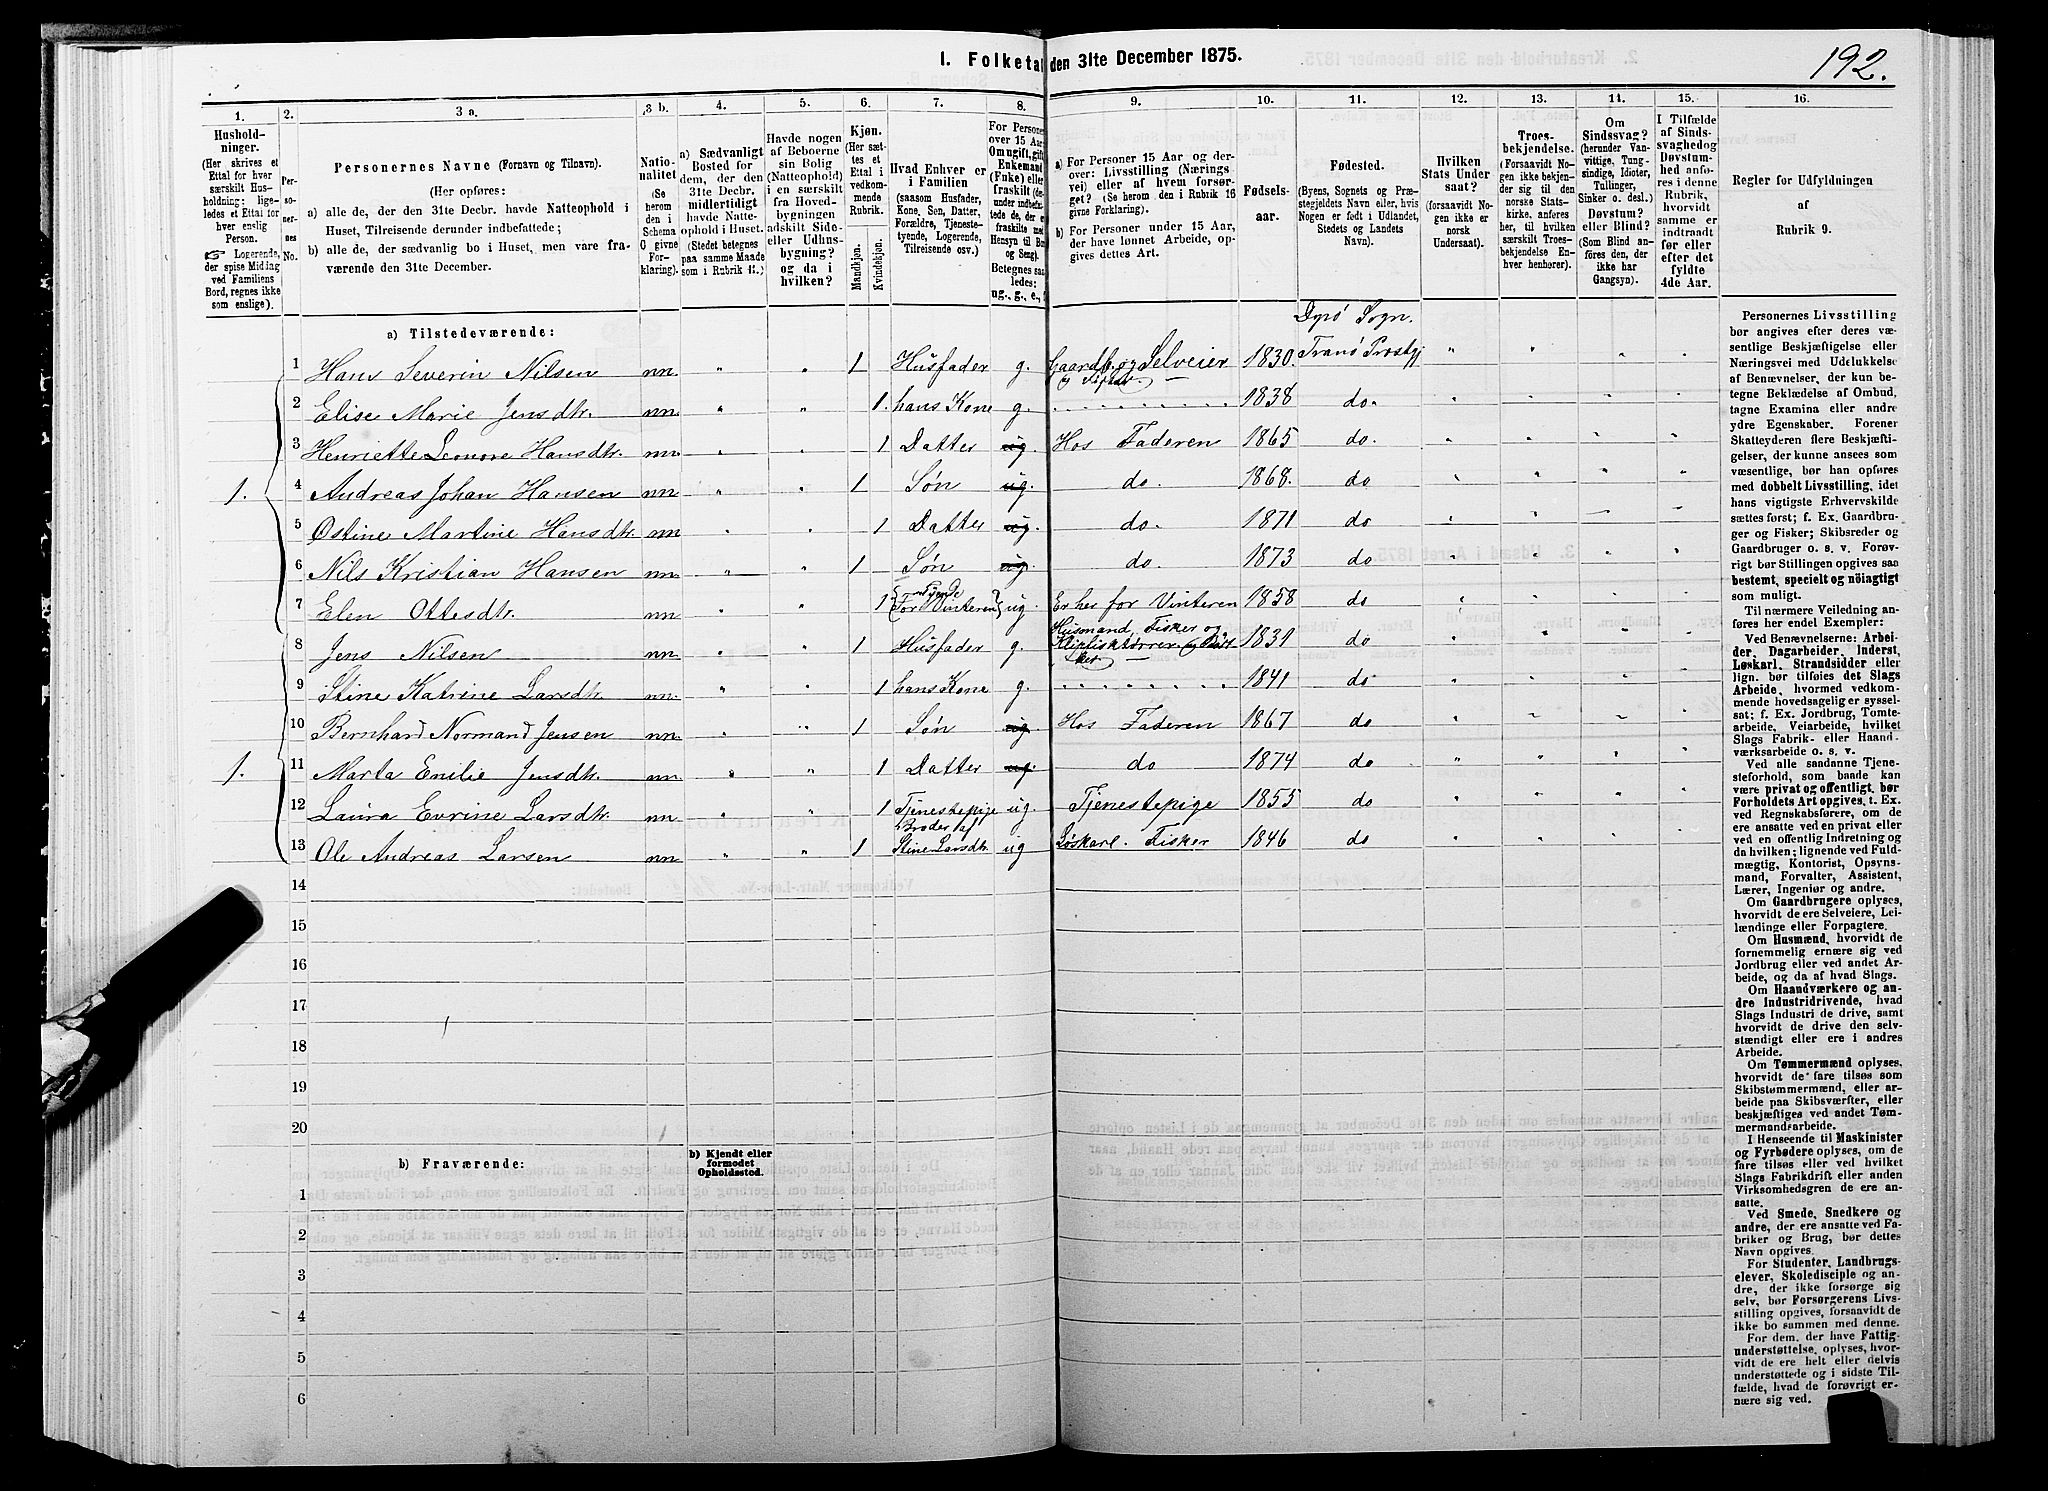 192.
1. Folketal den 31te December 1875.
1. 2. 3 a. 3 b. 4. 5. 6. 7. 8. 9. 10. 11. 12. 13. 14. 15. 16.
Hushold-
ninger.
(Her skrives et
Ettal for hver
særskilt Hus-
holdning; lige-
ledes et Ettal for
hver enslig
Person.
Logerende,
der spise Middag
ved Familiens
Bord, regnes ikke
som enslige).
Per-
so-
ner-
nes
No.
Personernes Navne (Fornavn og Tilnavn).
(Her opføres:
a) alle de, der den 31te Decbr. havde Natteophold i
Huset, Tilreisende derunder indbefattede;
b) alle de, der sædvanlig bo i Huset, men vare fra-
værende den 31te December.
Natio-
nalitet
(Se
herom
den i
Schema
O givne
For-
klaring).
a) Sædvanligt
Bosted for
dem, der den
31te Decbr.
midlertidigt
havde Natte-
ophold i Huset.
(Stedet betegnes
paa samme Maade
som i Rubrik 11.)
Havde nogen
af Beboerne
sin Bolig
(Natteophold)
i en særskilt
fra Hoved-
bygningen
adskilt Side-
eller Udhus-
bygning?
og da i
hvilken?
Kjøn.
(Her sæt-
tes et
Ettal i
vedkom-
mende
Rubrik.
Mandkjøn.
Kvindekjøn.
Hvad Enhver er
i Familien
(saasom Husfader,
Kone, Søn, Datter,
Forældre, Tjeneste-
tyende, Logerende,
Tilreisende osv.)
For Personer
over 15 Aar:
Om ugift, gift,
Enkemand
(Enke) eller
fraskilt
Betegnes saa-
ledes:
ug., g., e.,
a) For Personer 15 Aar og der-
over: Livsstilling (Nærings-
vei) eller af hvem forsør-
get? (Se herom den i Rubrik 16
givne Forklaring).
b) For Personer under 15 Aar,
der have lønnet Arbeide, op-
gives dettes Art.
Fødsels-
aar.
Fødested.
(Byens, Sognets og Præ-
stegjeldets Navn eller, hvis
Nogen er født i Udlandet,
Stedets og Landets
Navn).
Hvilken
Stats Under-
saat?
(forsaavidt No-
gen ikke er
norsk
Undersaat).
Troes-
bekjendelse.
(Forsaavidt No-
gen ikke bekjen-
der sig til den
norske Stats-
kirke, anføres
her, til hvilken
særskilt Troes-
bekjendelse En-
hver henhører).
Om
Sindssvag?
(herunder Van-
vittige, Tung-
sindige, Idioter,
Tullinger,
Sinker o. desl.)
Døvstum?
eller Blind?
(Som Blind an-
føres den, der
ikke har
Gangsyn).
I Tilfælde
af Sinds-
svaghed og
Døvstum-
hed anfø-
res i denne
Rubrik,
hvorvidt
samme er
indtraadt
før eller
efter det
fyldte
4de Aar.
Regler for Udfyldningen
af
Rubrik 9.
a) Tilstedeværende:
Dyrö Sogn.
1 Hans Severin Nilsen nn. " " 1 Husfader g. Gaardb. og Selveier 1830. Tranö Prestgj " " " "
2 Elise Marie Jensdtr. nn. " " 1. hans Kone g. 1838 do. " " " "
3 Henriette Leonore Hansdtr. nn. " " 1 Datter ug. Hos Faderen 1865 do. " " " "
1. 4 Andreas Johan Hansen nn. " " 1 Søn ug. do. 1868. do " " " "
5 Ostine Martine Hansdtr. nn. " " 1 Datter ug. do. 1871 do " " " "
6 Nils Kristian Hansen nn. " " 1 Søn ug. do. 1873 do " " " "
7 Elen Ottesdtr. nn. " " 1 For Vinteren ug. Er her for Vinteren 1858 do " " " "
Husmand, Fisker og
8 Jens Nilsen nn. " " 1 Husfader g. 1831 do " " " "
9 Stine Katrine Larsdtr. nn. " " 1 hans Kone g. 1841 do " " " "
10 Bernhard Normand Jensen nn. " " 1 Søn ug. Hos Faderen 1867 do " " " "
1. 11 Marta Emilie Jensdtr. nn. " " 1 Datter ug. do 1874 do " " " "
12 Laura Evrine Larsdtr. nn. " " 1 Tjenestepige ug. Tjenestepige 1855 do " " " "
Broder af
13 Ole Andreas Larsen nn. " " 1 Stine Larsdtr. ug Løskarl. Fisker 1846 do " " " "
14
15
16
17
18
19
20
b) Fraværende:
b) Kjendt eller
formodet
Opholdssted.
1
2
3
4
5
6
Personernes Livsstilling
bør angives efter deres væ-
sentlige Beskjæftigelse eller
Næringsvei med Udelukkelse
af Benævnelser, der kun be-
tegne Beklædelse af Ombud,
tagne Examina eller andre
ydre Egenskaber. Forener
Skatteyderen flere Beskjæfti-
gelser, der kunne ansees som
væsentlige, bør han opføres
med dobbelt Livsstilling, idet
hans vigtigste Erhvervskilde
sættes først; f. Ex. Gaardbru-
ger og Fisker; Skibsreder og
Gaardbruger o. s. v. Forøv-
rigt bør Stillingen opgives saa
bestemt, specielt og nöiagtigt
som muligt.
Til nærmere Veiledning an-
føres her endel Exempler:
Ved Benævnelserne: Arbei-
der, Dagarbeider, Inderst,
Løskarl, Strandsidder eller
lign. bør tilføies det Slags
Arbeide, hvormed vedkom-
mende hovedsagelig er syssel-
sat; f. Ex. Jordbrug, Tomte-
arbeide, Veiarbeide, hvilket
Slags Fabrik- eller Haand-
værksarbeide o. s. v.
Ved alle saadanne Tjene-
steforhold, som baade kan
være privat og offentligt, bør
Forholdets Art opgives, t. Ex.
ved Regnskabsførere, om de
ere ansatte ved en privat eller
ved en offentlig Indretning og
da hvilken; lignende ved Fuld-
mægtig, Kontorist, Opsyns-
mand, Forvalter, Assistent,
Lærer, Ingeniør og andre.
Om Gaardbrugere oplyses,
hvorvidt de ere Selveiere, Lei-
lændinge eller Forpagtere.
Om Husmænd, hvorvidt de
fornemmelig ernære sig ved
Jordbrug eller ved andet Ar-
beide, og da af hvad Slags.
Om Haandværkere og an-
dre Industridrivende, hvad
Slags Industri de drive, samt
hvorvidt de drive den selv-
stændigt eller ere i andres
Arbeide.
Om Tømmermænd oplyses,
hvorvidt de fare tilsøs som
Skibstømmermænd, eller ar-
beide paa Skibsværfter, eller
beskjæftiges ved andet Tøm-
mermandsarbeide.
I Henseende til Maskinister
og Fyrbødere oplyses, om de
fare tilsøs eller ved hvilket
Slags Fabrikdrift eller anden
Virksomhedsgren de ere an-
satte.
Ved Smede, Snedkere og
andre, der ere ansatte ved Fa-
briker og Brug, bør dettes
Navn opgives.
For Studenter, Landbrugs-
elever, Skoledisciple og an-
dre, der ikke forsørge sig
selv, bør Forsørgerens Livs-
stilling opgives, forsaavidt de
ikke bo sammen med denne.
For dem, der have Fattig-
understøttelse, oplyses, hvor-
vidt de ere helt eller delvis
understøttede og i sidste Til-
fælde, hvad de forøvrigt er-
nære sig ved.